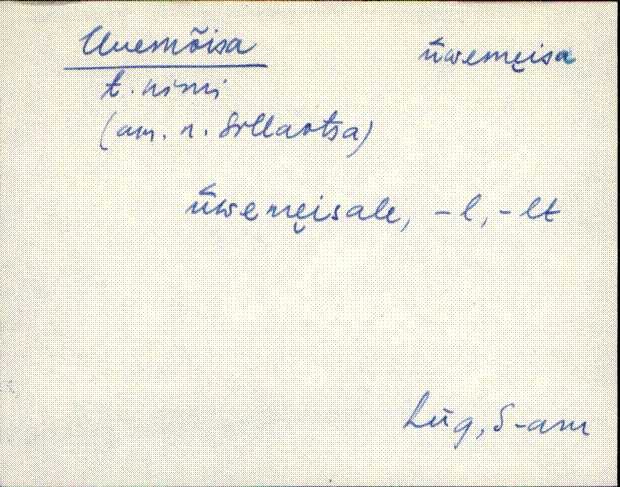 Uuemõisa ūwemęisa
t. nimi
(am. n. Sillaotsa)
ūwemęisale, -l, -lt
Lüg, S-am